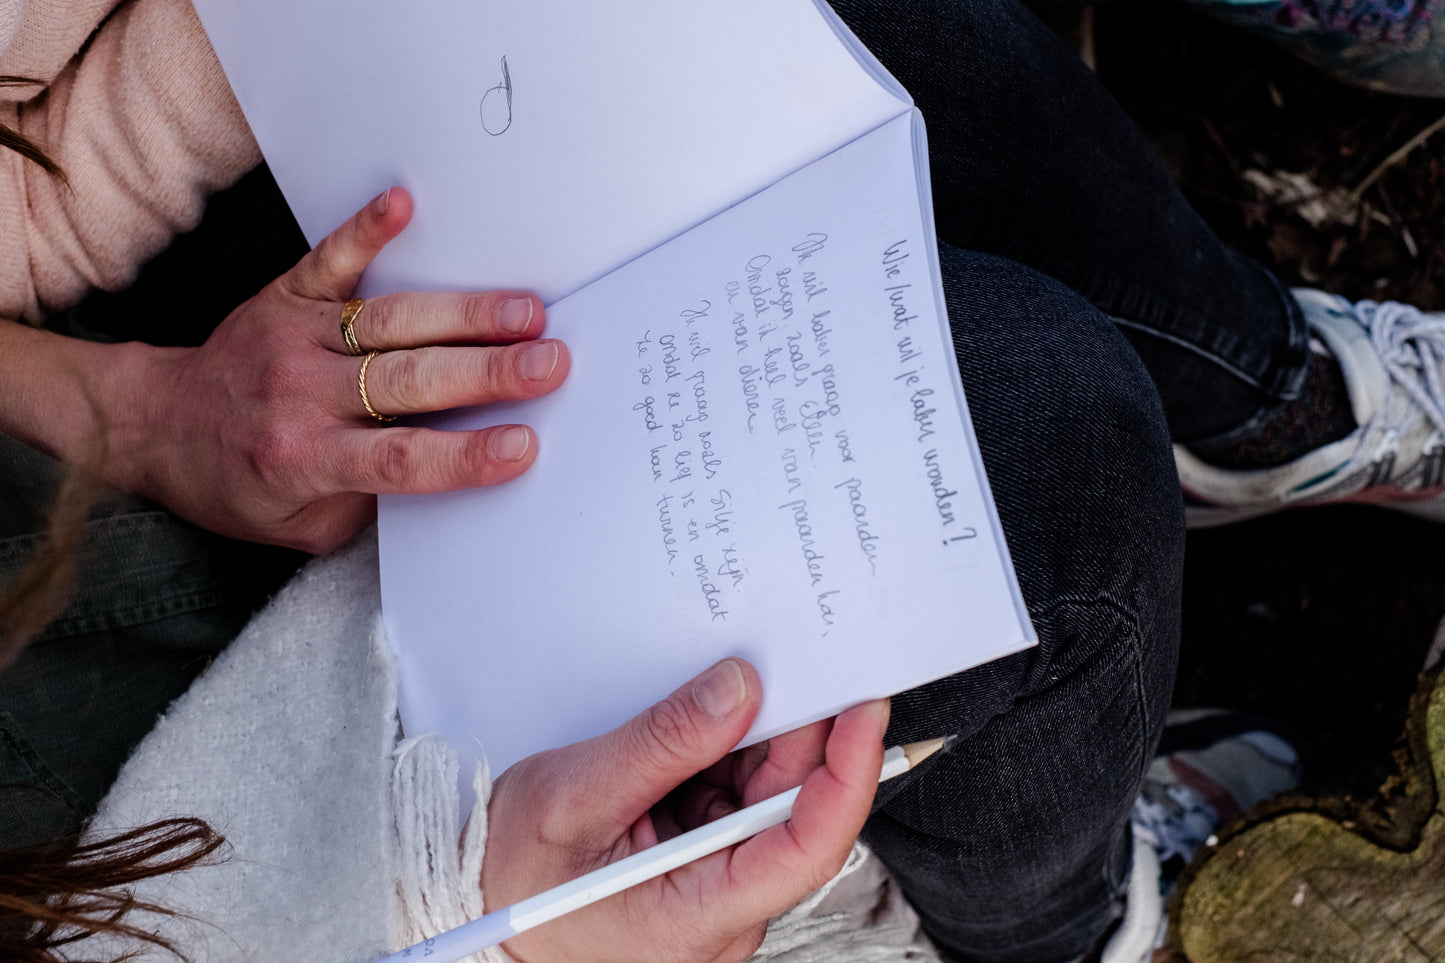 Wie/wat wil je later worden?
Ik wil later graag voor paarden
zorgen. zoals Ellen.
Omdat ik heel veel van paarden hou,
en van dieren
Ik wil graag zoals Silje zijn.
omdat ze zo lief is en omdat
ze zo goed kan turnen.